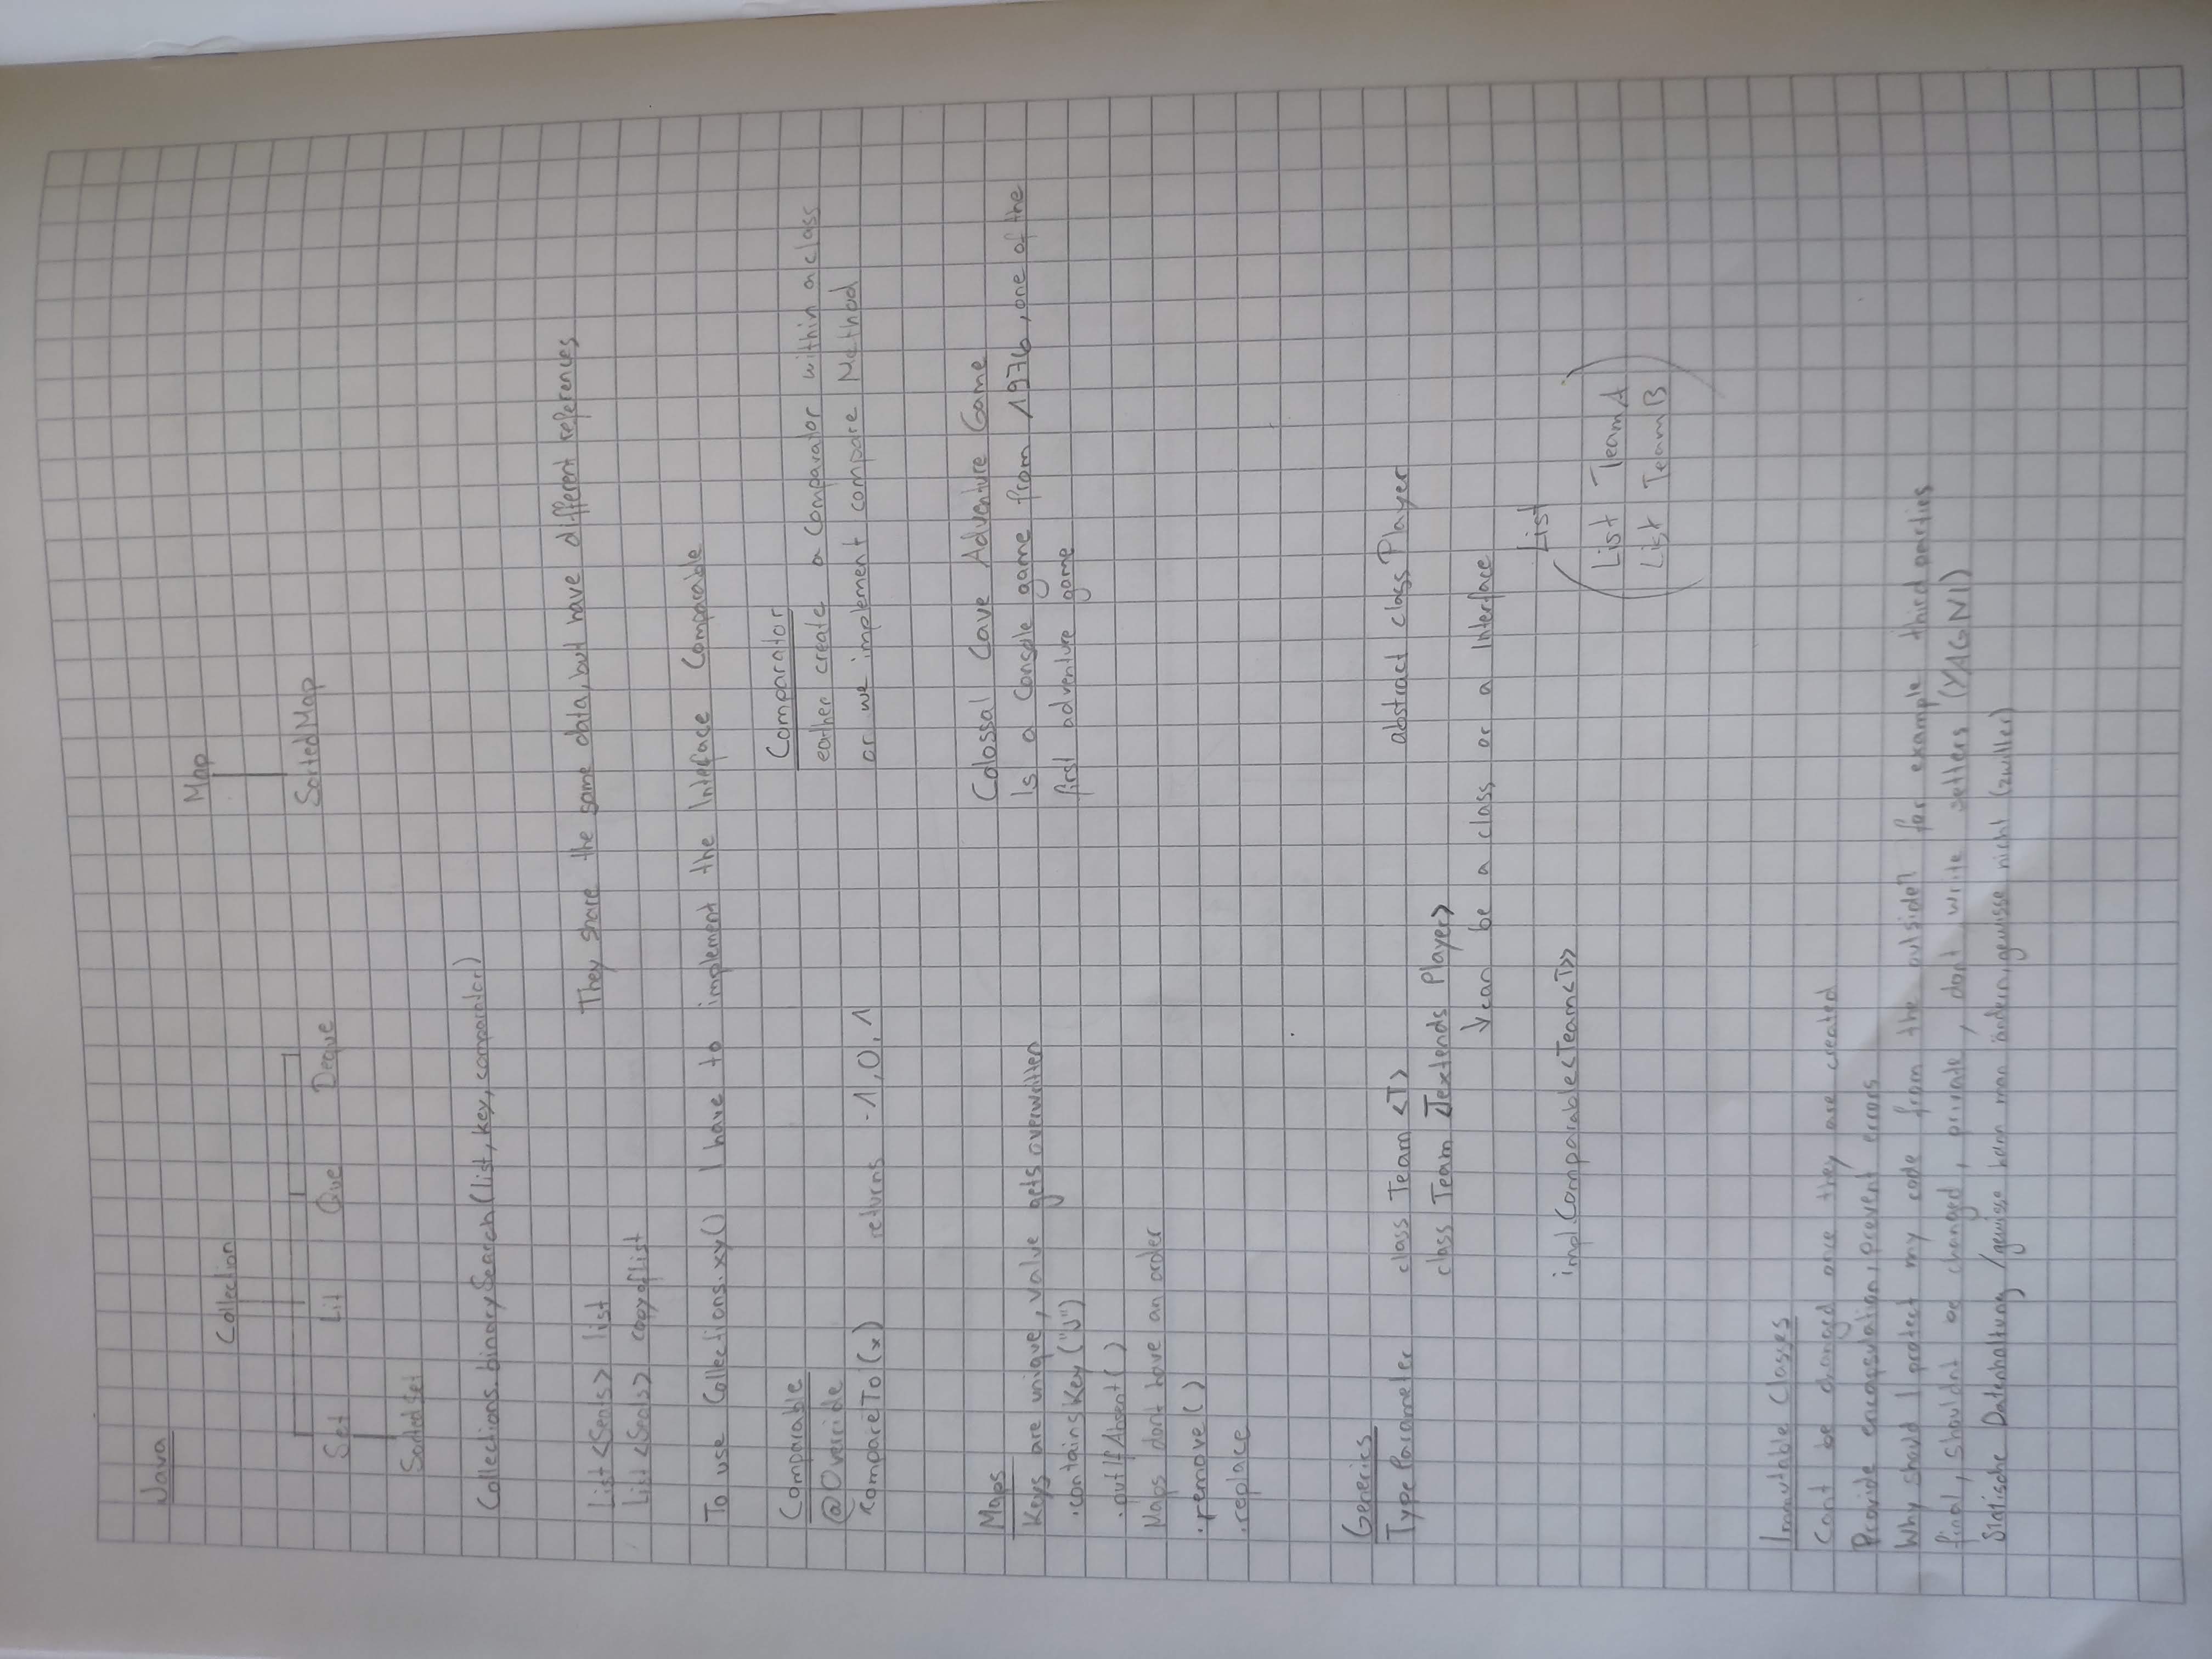 Java
Collection
Map
Set Lit Que Deque
SortedMap
SortedSet
Collections.binarySearch(list, key, comparator)
List <Seats> list
They share the same data, but have different references
List <Seats> copyoflist
To use Collections.xy() I have to implement the Interface Comparable
Comparable
@Override
compareTo(x) returns -1, 0, 1
Comparator
eather create a Comparator within a class
or we implement compare Method
Maps
Keys are unique, value gets overwritten
.containsKey("J")
.putIfAbsent()
Maps dont have an order
.remove()
.replace
Colossal Cave Adventure Game
Is a Console game from 1976, one of the
first adventure game
Generics
Type Parameter class Team <T>
abstract class Player
class Team <T extends Player>
↓ can be a class or a Interface
impl. Comparable<Team<T>>
List
List TeamA
List TeamB
Immutable Classes
Cant be changed once they are created
Provide encapsulation, prevent errors
Why should I protect my code from the outside? for example third parties
final, shouldnt be changed, private, dont write setters (YAGNI)
Statische Datenhaltung / gewisse kann man ändern, gewisse nicht